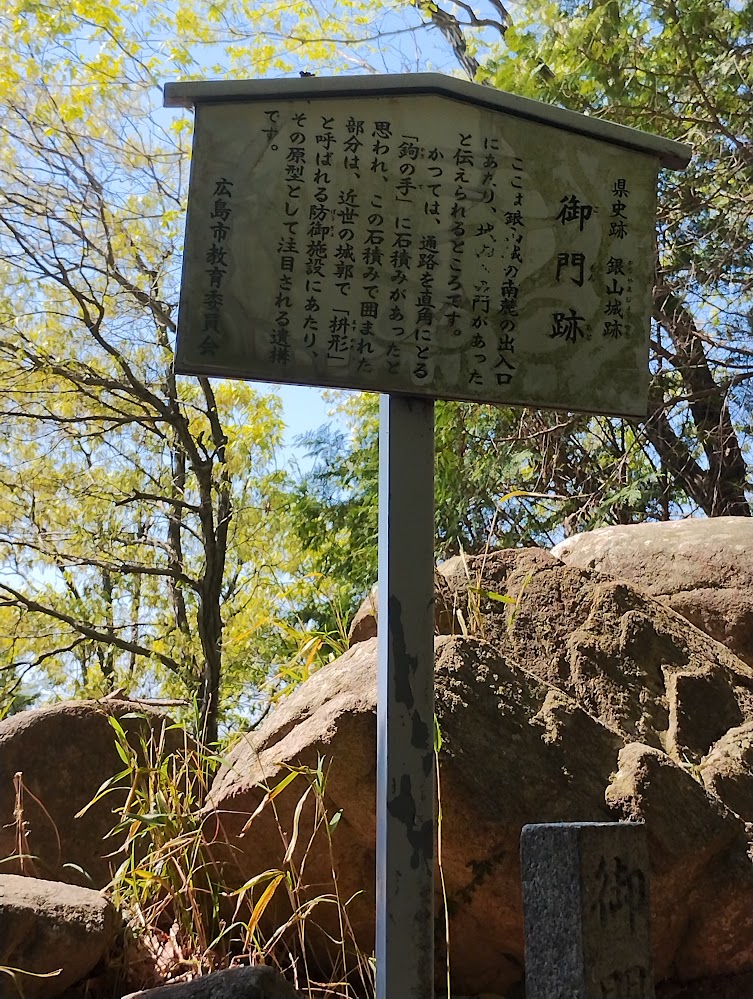 県史跡　銀山城跡
御門跡
ここは銀山城の南麓の出入口
にあたり、門があった
と伝えられるところです。
かつては、通路を直角にとる
「鉤の手」に石積みがあったと
思われ、この石積みで囲まれた
部分は、近世の城郭で「枡形」
と呼ばれる防御施設にあたり、
その原型として注目される遺構
です。
広島市教育委員会
御門